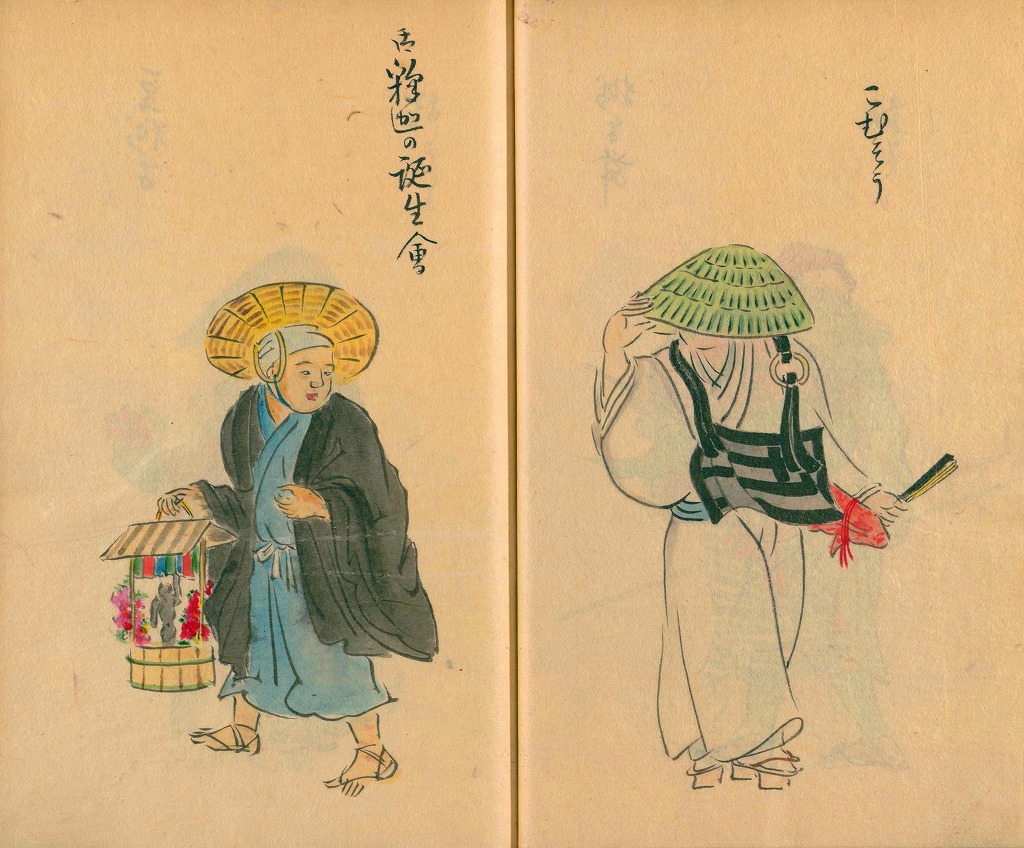 こむそう
お釈迦の誕生會